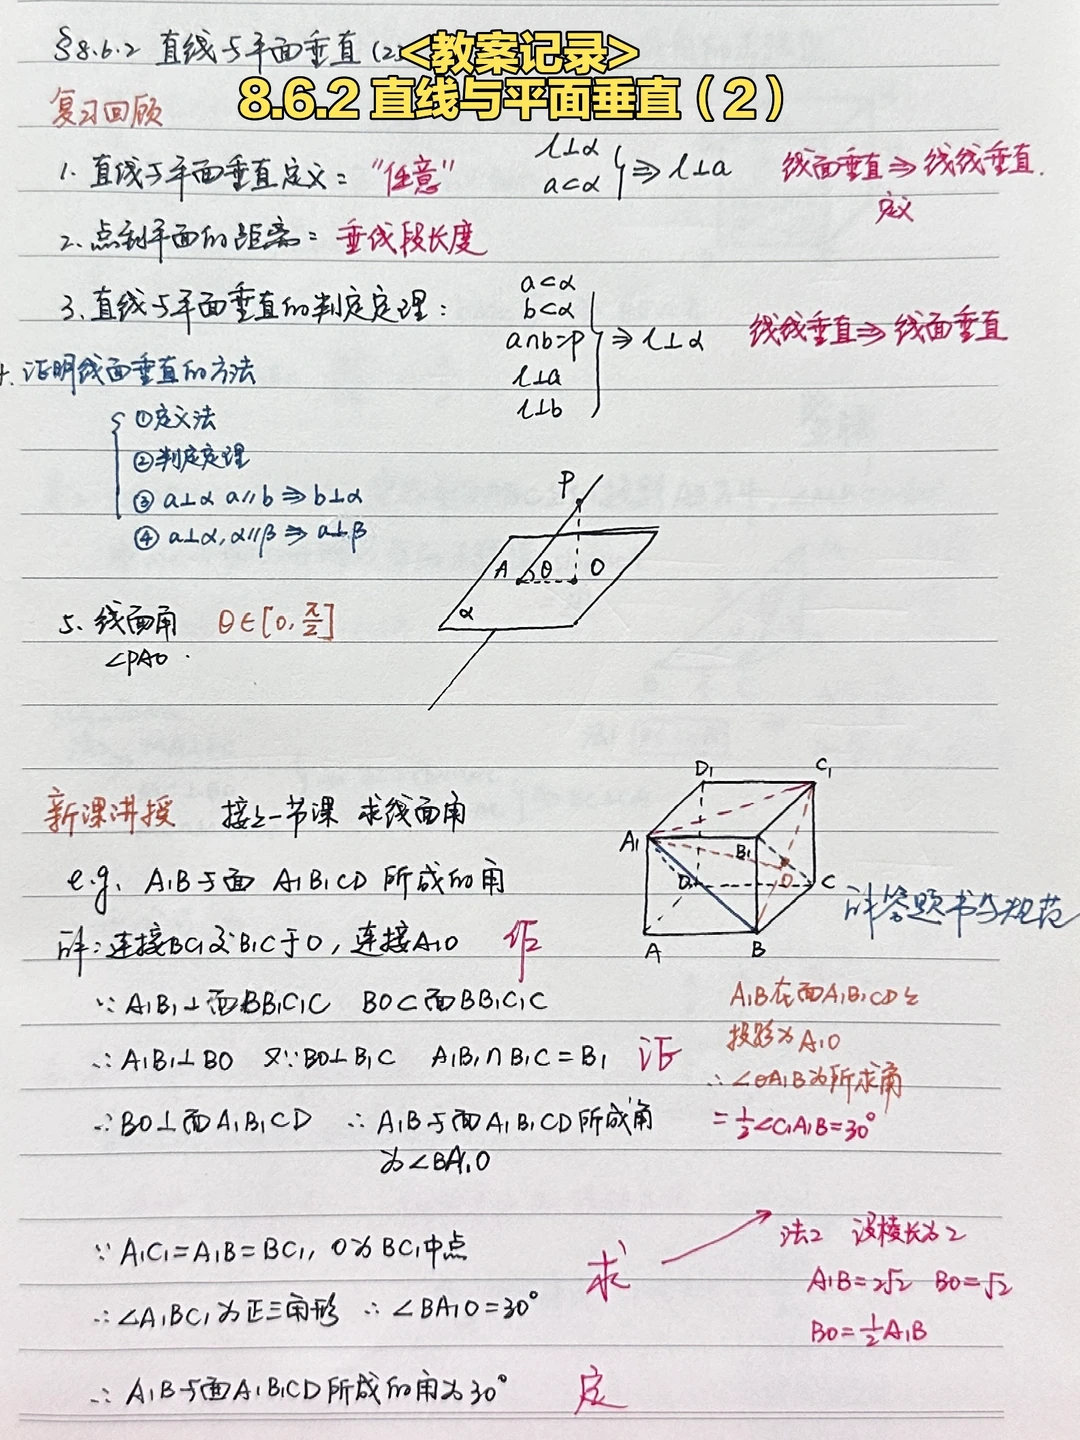 §8.6.2 直线与平面垂直(2)
<教案记录>
8.6.2 直线与平面垂直（2）
复习回顾
1. 直线与平面垂直定义：“任意” l⊥α a⊂α } ⇒ l⊥a 线面垂直 ⇒ 线线垂直.
定义
2. 点到平面的距离：垂线段长度
3. 直线与平面垂直的判定定理：
a⊂α
b⊂α
a∩b=P
l⊥a
l⊥b
} ⇒ l⊥α 线线垂直 ⇒ 线面垂直
4. 证明线面垂直的方法
① 定义法
② 判定定理
③ a⊥α a∥b ⇒ b⊥α
④ a⊥α, α∥β ⇒ a⊥β
P
A θ O
α
5. 线面角 θ∈[0, π/2]
∠PAO.
新课讲授 接上一节课 求线面角
D₁ C₁
A₁ B₁
D O C
A B
e.g. A₁B与面 A₁B₁CD 所成的角
解答题书写规范
解：连接BC₁交B₁C于O，连接A₁O 作
∵ A₁B₁⊥面BB₁C₁C BO⊂面BB₁C₁C
∴ A₁B₁⊥BO 又∵BO⊥B₁C A₁B₁∩B₁C=B₁ 证
∴ BO⊥面A₁B₁CD ∴ A₁B与面A₁B₁CD所成角
为∠BA₁O
A₁B在面A₁B₁CD上
投影为A₁O
∴∠OA₁B为所求角
=½∠C₁A₁B=30°
∵ A₁C₁=A₁B=BC₁, O为BC₁中点
∴ △A₁BC₁为正三角形 ∴ ∠BA₁O=30°
求
法2 设棱长为2
A₁B=2√2 BO=√2
BO=½A₁B
∴ A₁B与面A₁B₁CD所成的角为30° 定